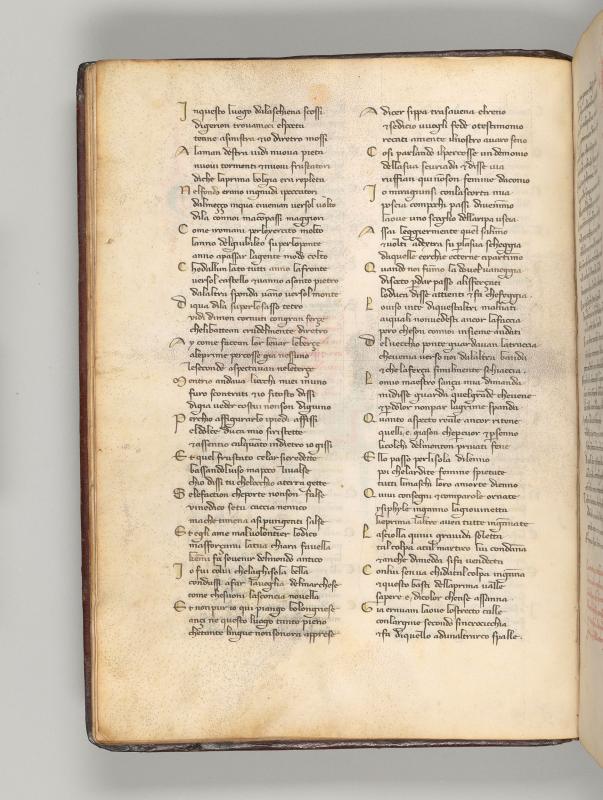 In questo luogo dalaschiena scossi
digerion trovamoci elpoeta
tenne asinistra et io diretro mossi
A laman destra vidi nuova pieta
nuovi tormenti e nuovi frustatori
diche laprima bolgia era repleta
Nelfondo erano ingnudi ipeccatori
dalmezzo inqua civenian versol volto
dila connoi macompassi maggiori
Come iromani perloxercito molto
lanno delgiubileo superloponte
anno apassar lagente modo colto
Chedallun lato tutti anno lafronte
versol castello e vanno asanto pietro
dalaltra sponda vanno versol monte
Diqua dila superlosasso tetro
vidi dimon cornuti congran ferze
chelibattean crudelmente diretro
Ay come facean lor levar leberze
aleprime percosse gia nessuno
lesecondo aspectavan neleterze
Mentre andava liochi miei inuno
furo scontrati et io sitosto dissi
digia veder costui nonson digiuno
Perchio affigurarlo ipiedi affissi
eldolce duca mio siristette
e assentio calquanto indietro io gissi
Et quel frustato celar sicredette
bassandolviso mapoco livalse
chio dissi tu chelocchio aterra gette
Selefaction cheporte nonson false
venedico setu caccia nemico
mache timena asipungenti salse
Et egli ame malvolontier lodico
masforzami latua chiara favella
chemi fa sovenir delmondo antico
Io fui colui chelaghisola bella
condussi afar lavoglia delmarchese
come chesuoni lasconcia novella
Et non pur io qui piango bolongnese
anzi ne questo luogo tanto pieno
chetante lingue nonsonora apprese
A dicer sippa trasavena elreno
e sedicio vuogli fede otestimonio
recati amente ilnostro avaro seno
Cosi parlando ilpercosse undemonio
dellasua scuriada e disse via
ruffian quinonson femine daconio
Io miragiunsi conlascorta mia
poscia compochi passi divenimo
laove uno scoglio dellaripa uscia
Assai leggiermente quel salimo
e volti adextra su plasua scheggia
daquelle cerchie etterne cipartimo
Quando noi fumo la dovel vaneggia
disocto pdar passo alisferçati
loduca disse attienti e fa chefeggia
Lo viso inte diquestaltri malnati
aiquali nonvedesti ancor lafaccia
pero cheson connoi insieme andati
Del vecchio ponte guardavan latraccia
chevenia verso noi dalaltra banda
e chelaferça similmente schiaccia
Lo mio maestro sança mia dimanda
midisse guarda quelgrande chevene
e pdolor nonpar lagrime spanda
Quanto aspecto reale ancor ritene
quelli e giason chepercuor e psenno
licolchi delmonton privati fene
Ello passo perlisola dilenno
poi chelardite femine spietate
tutti limaschi loro amorte dienno
Quivi consegni e comparole ornate
ysiphyle inganno lagiovinetta
keprima laltre avea tutte ingannate
Lasciolla quivi gravida soletta
tal colpa atal martiro lui condanna
e anche dimedea sifa vendetta
Conlui senva chidatal colpa inganna
e questo basti dellaprima valle
sapere e dicolor chense assanna
Gia eravam laove lostrecto calle
conlargine secondo sincrocicchia
e fa diquello adunaltrarco spalle